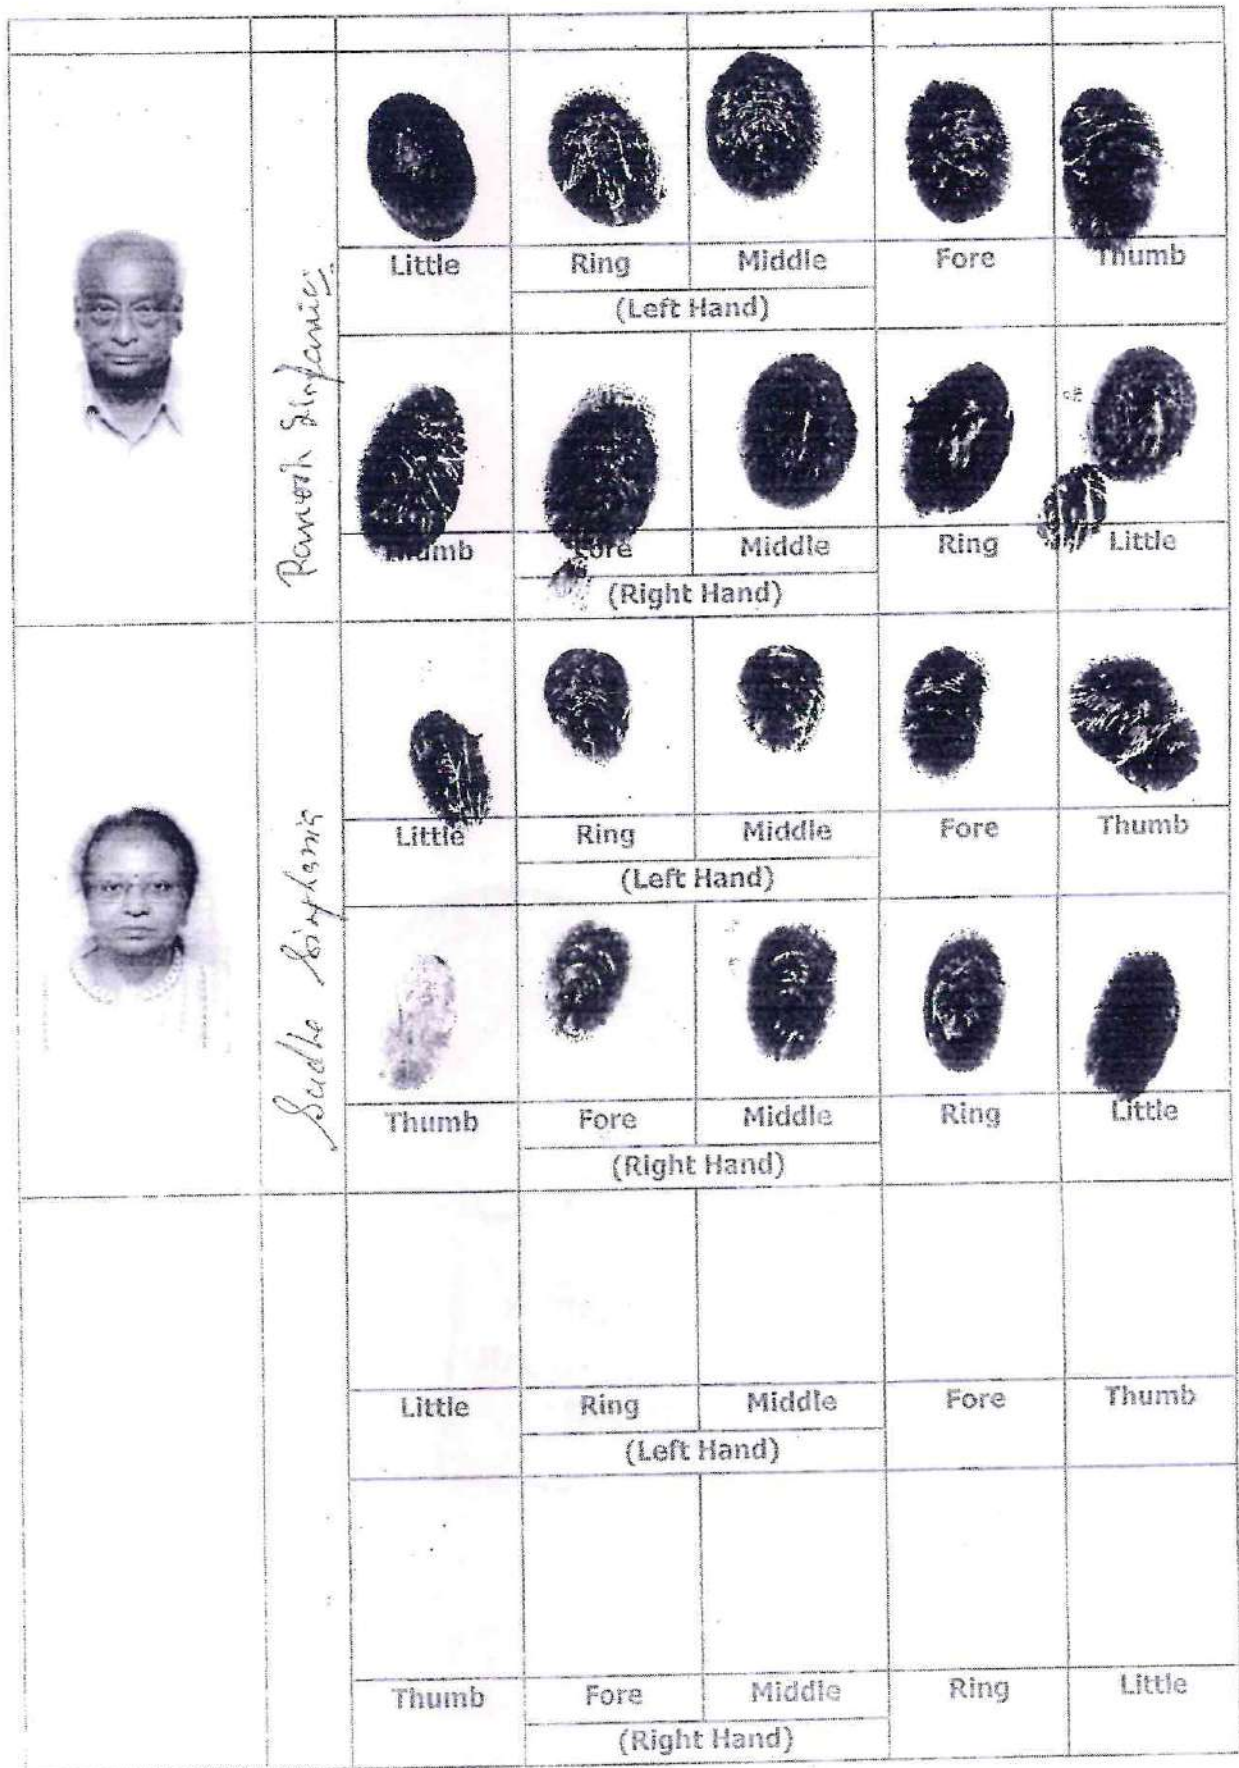 Little Ring Middle Fore Thumb
(Left Hand)
Thumb Fore Middle Ring Little
(Right Hand)
Little Ring Middle Fore Thumb
(Left Hand)
Sudha Singhania
Thumb Fore Middle Ring Little
(Right Hand)
Little Ring Middle Fore Thumb
(Left Hand)
Thumb Fore Middle Ring Little
(Right Hand)